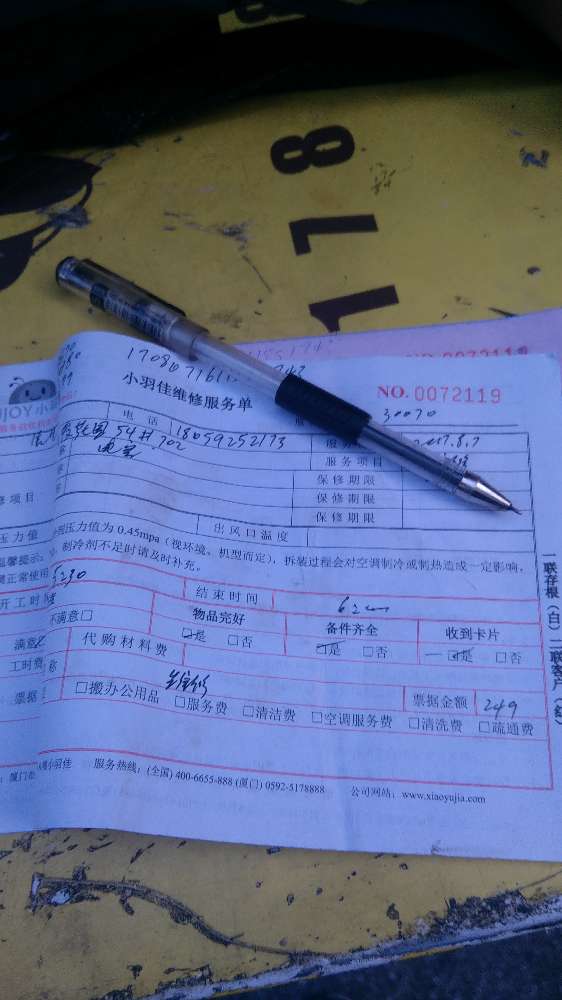 8
11
NO. 0072119
小羽佳维修服务单
JOY小
30070
电话 18059252173
54# 702
2017.8.7
服务项目
保修期限
保修期限
修项目
保修期限
压力值
出风口温度
压力值为 0.45mpa（视环境、机型而定），拆装过程会对空调制冷或制热造成一定影响，
温馨提示：
制冷剂不足时请及时补充。
属正常使用
5230
开工时间
结束时间
620
不满意□
物品完好
备件齐全
收到卡片
□是 □否
□是 □否
□是 □否
满意
代购材料费
工时费
票据
□搬办公用品 □服务费 □清洁费 □空调服务费 □清洗费 □疏通费
维修
票据金额 249
一联存根（白）二联客户（红）
小羽佳 服务热线：(全国) 400-6655-888 (厦门) 0592-5178888 公司网站：www.xiaoyujia.com